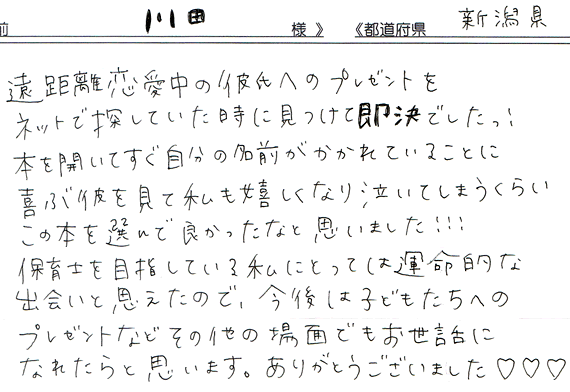 前 川田 様 》 《都道府県 新潟県
遠距離恋愛中の彼氏へのプレゼントを
ネットで探していた時に見つけて即決でしたっ!
本を開いてすぐ自分の名前がかかれていることに
喜ぶ彼を見て私も嬉しくなり泣いてしまうくらい
この本を選んで良かったなと思いました!!!
保育士を目指している私にとっては運命的な
出会いと思えたので、今後は子どもたちへの
プレゼントなどその他の場面でもお世話に
なれたらと思います。ありがとうございました♡♡♡